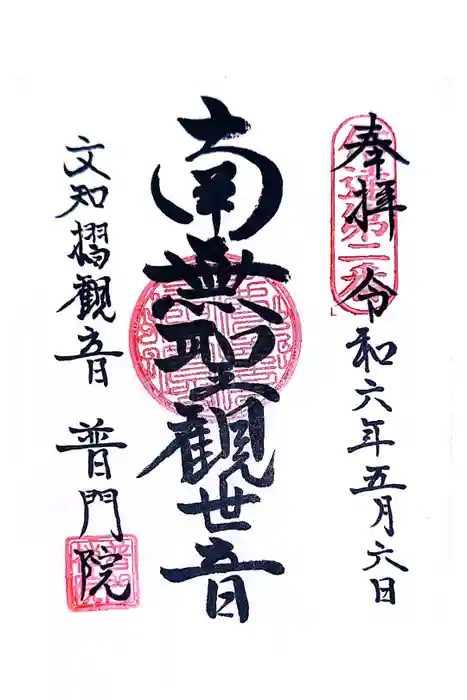 奉拝 令和六年五月六日
南無聖観世音
文知摺観音 普門院